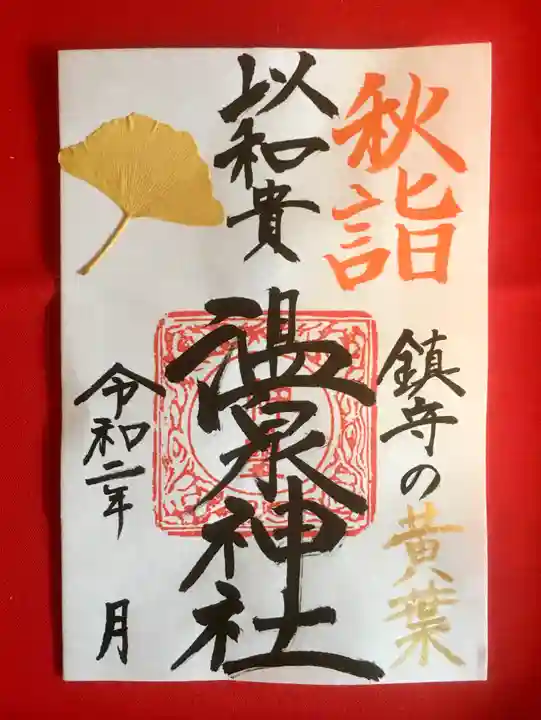 秋詣
鎮守の黄葉
以和貴
温泉神社
令和二年
月